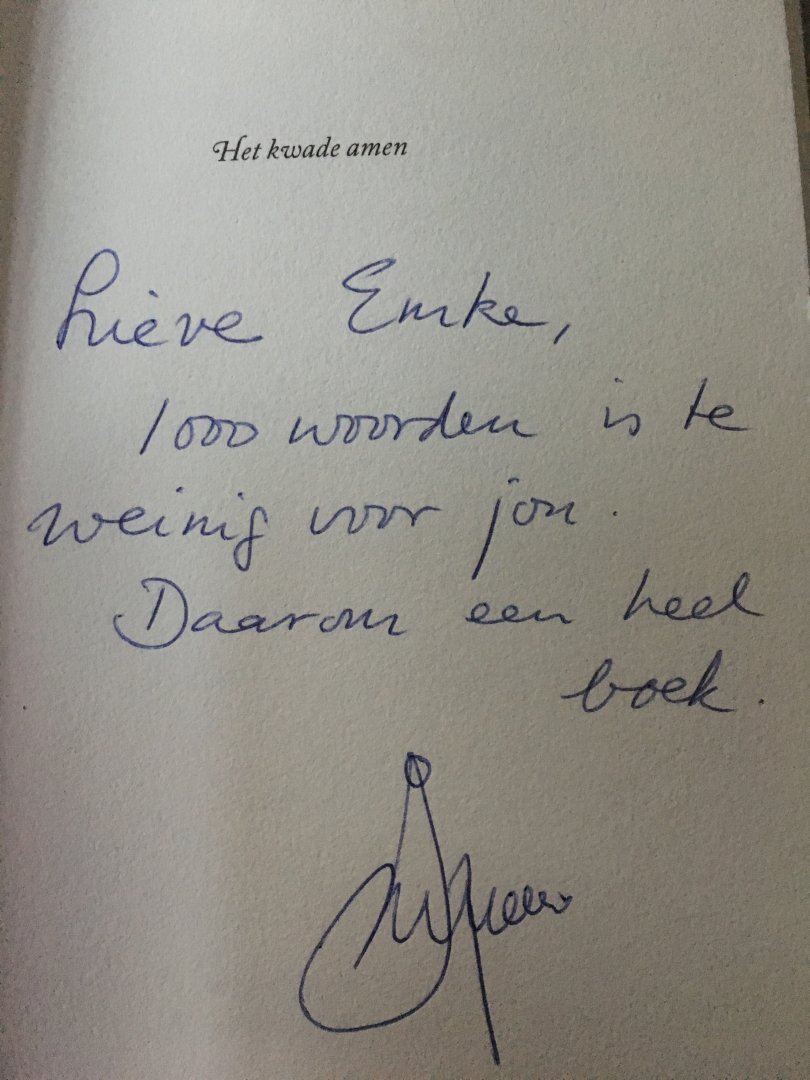 Het kwade amen
Lieve Emke,
1000 woorden is te
weinig voor jou.
Daarom een heel
boek.